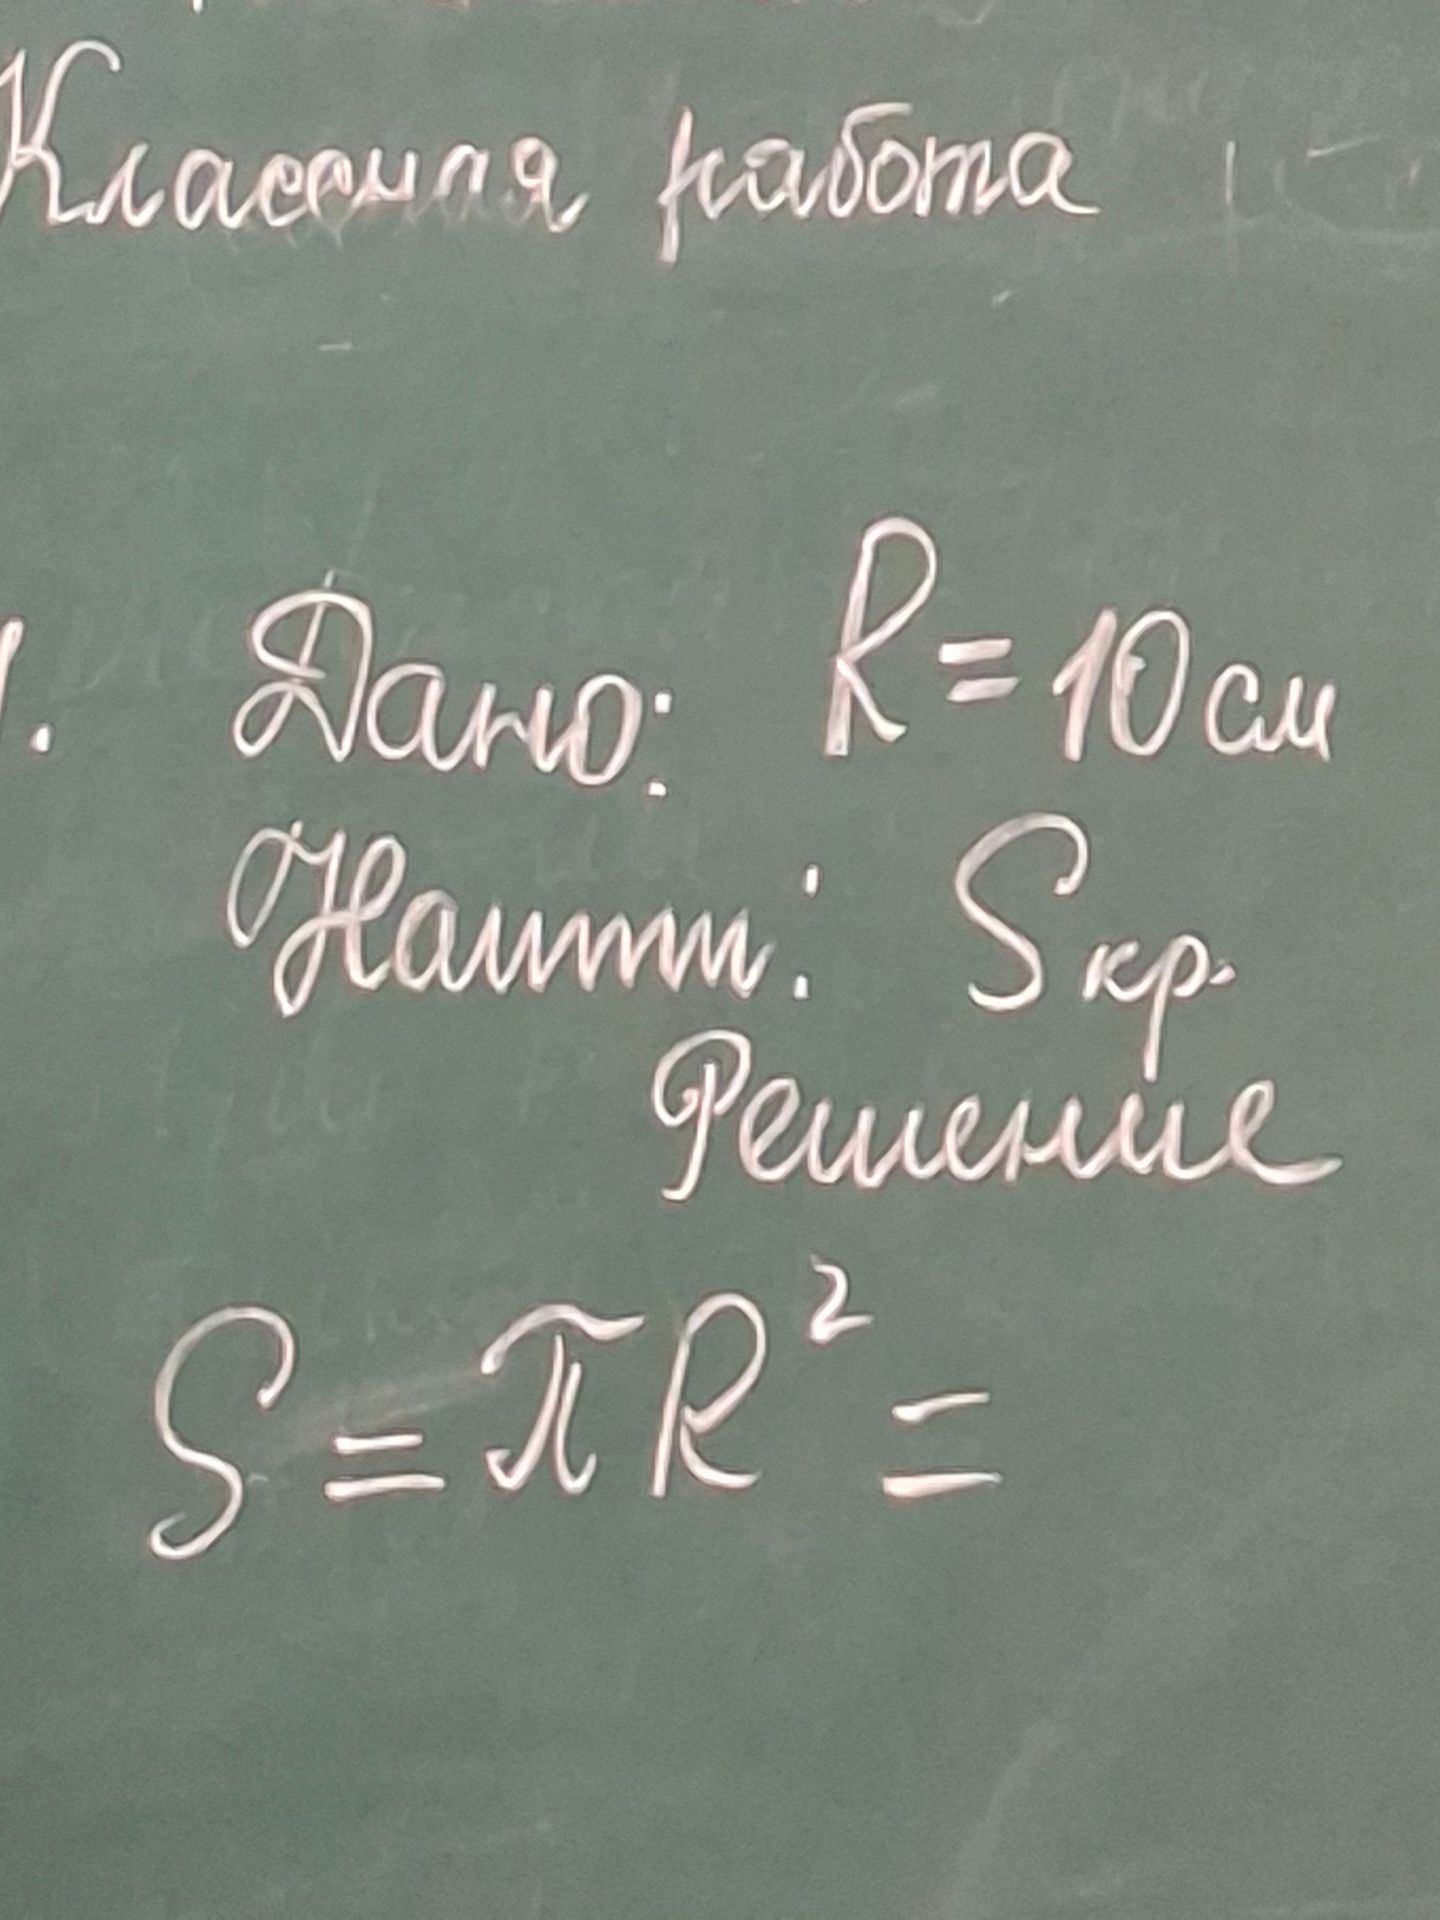 Классная работа
1. Дано: R = 10 см
Найти: Sкр.
Решение
S = πR² =